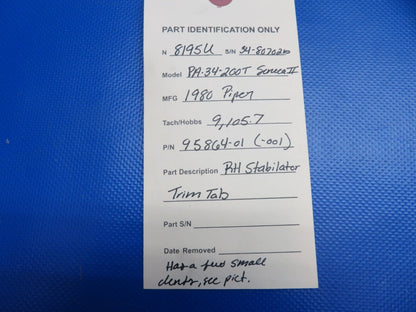 PART IDENTIFICATION ONLY
N 8195U S/N 34-8070210
Model PA-34-200T Seneca II
MFG 1980 Piper
Tach/Hobbs 9,105.7
P/N 95864-01 (-001)
Part Description RH Stabilator
Trim Tab
Part S/N
Date Removed
Has a few small
dents, see pict.